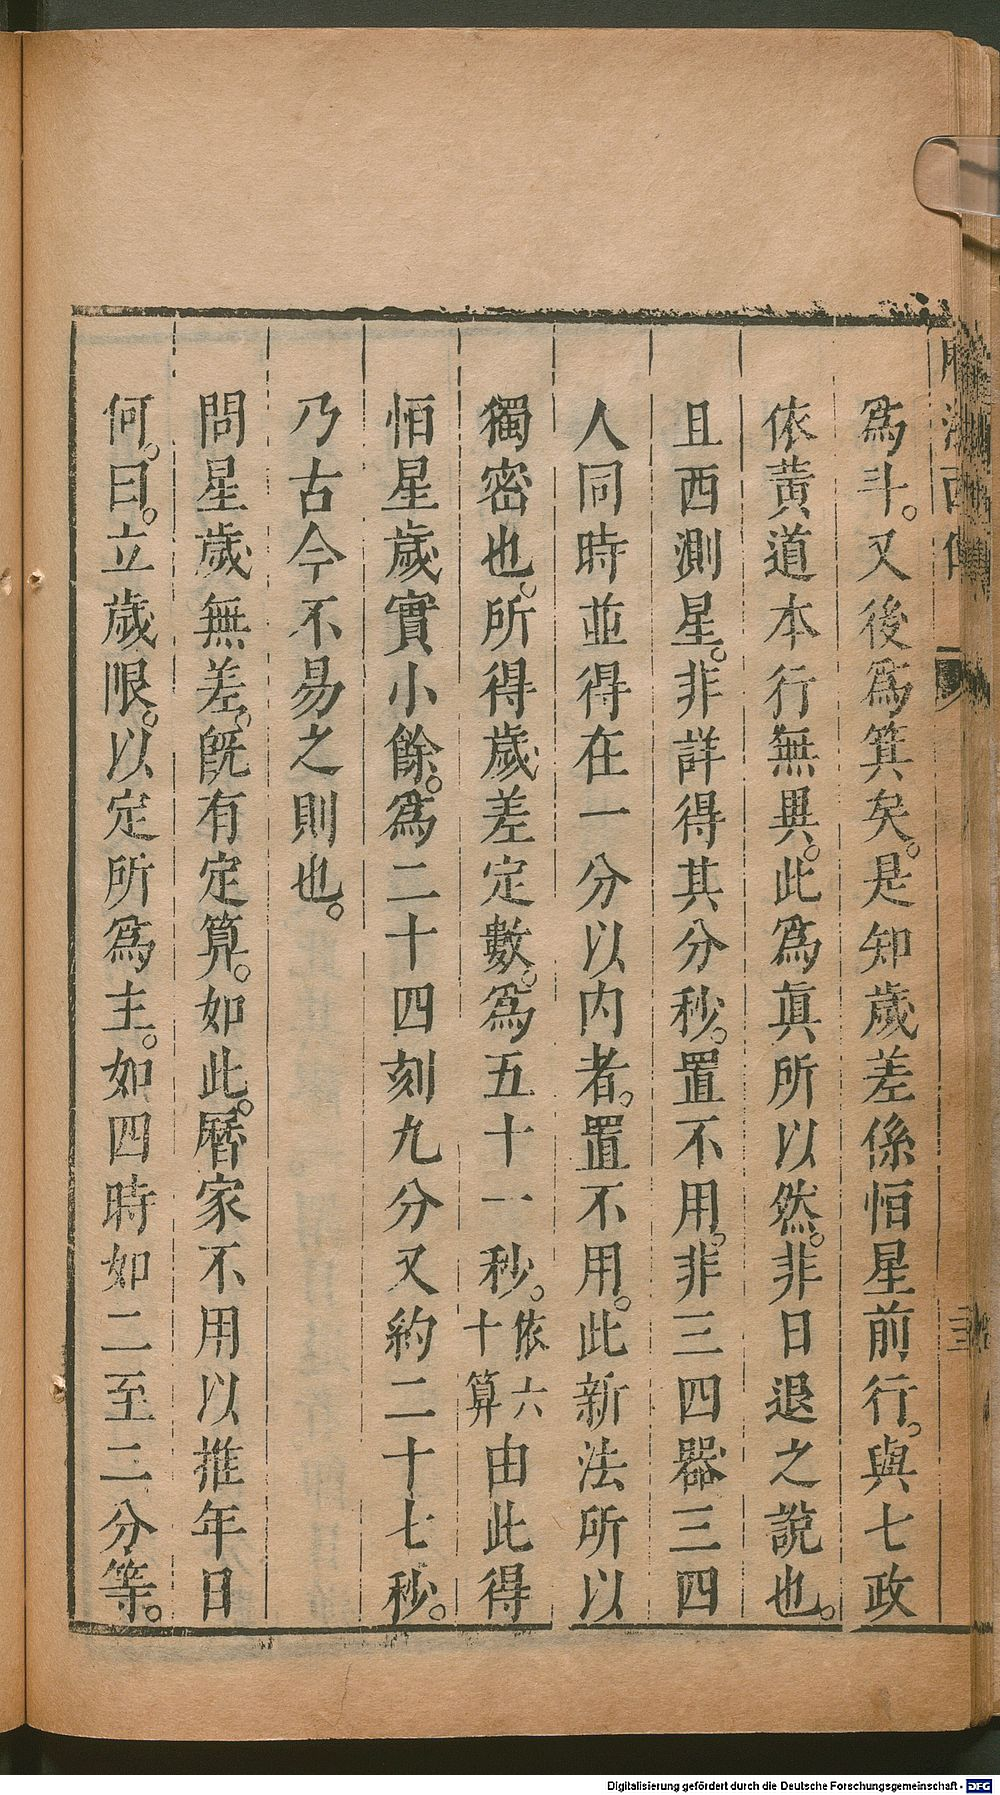 爲斗。又後爲箕矣。是知歲差係恒星前行。與七政
依黃道本行無異。此爲眞所以然。非日退之說也。
且西測星。非詳得其分秒。置不用。非三四器三四
人同時並得在一分以内者。置不用。此新法所以
獨密也。所得歲差定數。爲五十一秒。依六十算由此得
恒星歲實小餘。爲二十四刻九分又約二十七秒。
乃古今不易之則也。
問星歲無差。旣有定算。如此。曆家不用以推年日
何。曰。立歲限。以定所爲主。如四時如二至二分等。
Digitalisierung gefördert durch die Deutsche Forschungsgemeinschaft - DFG